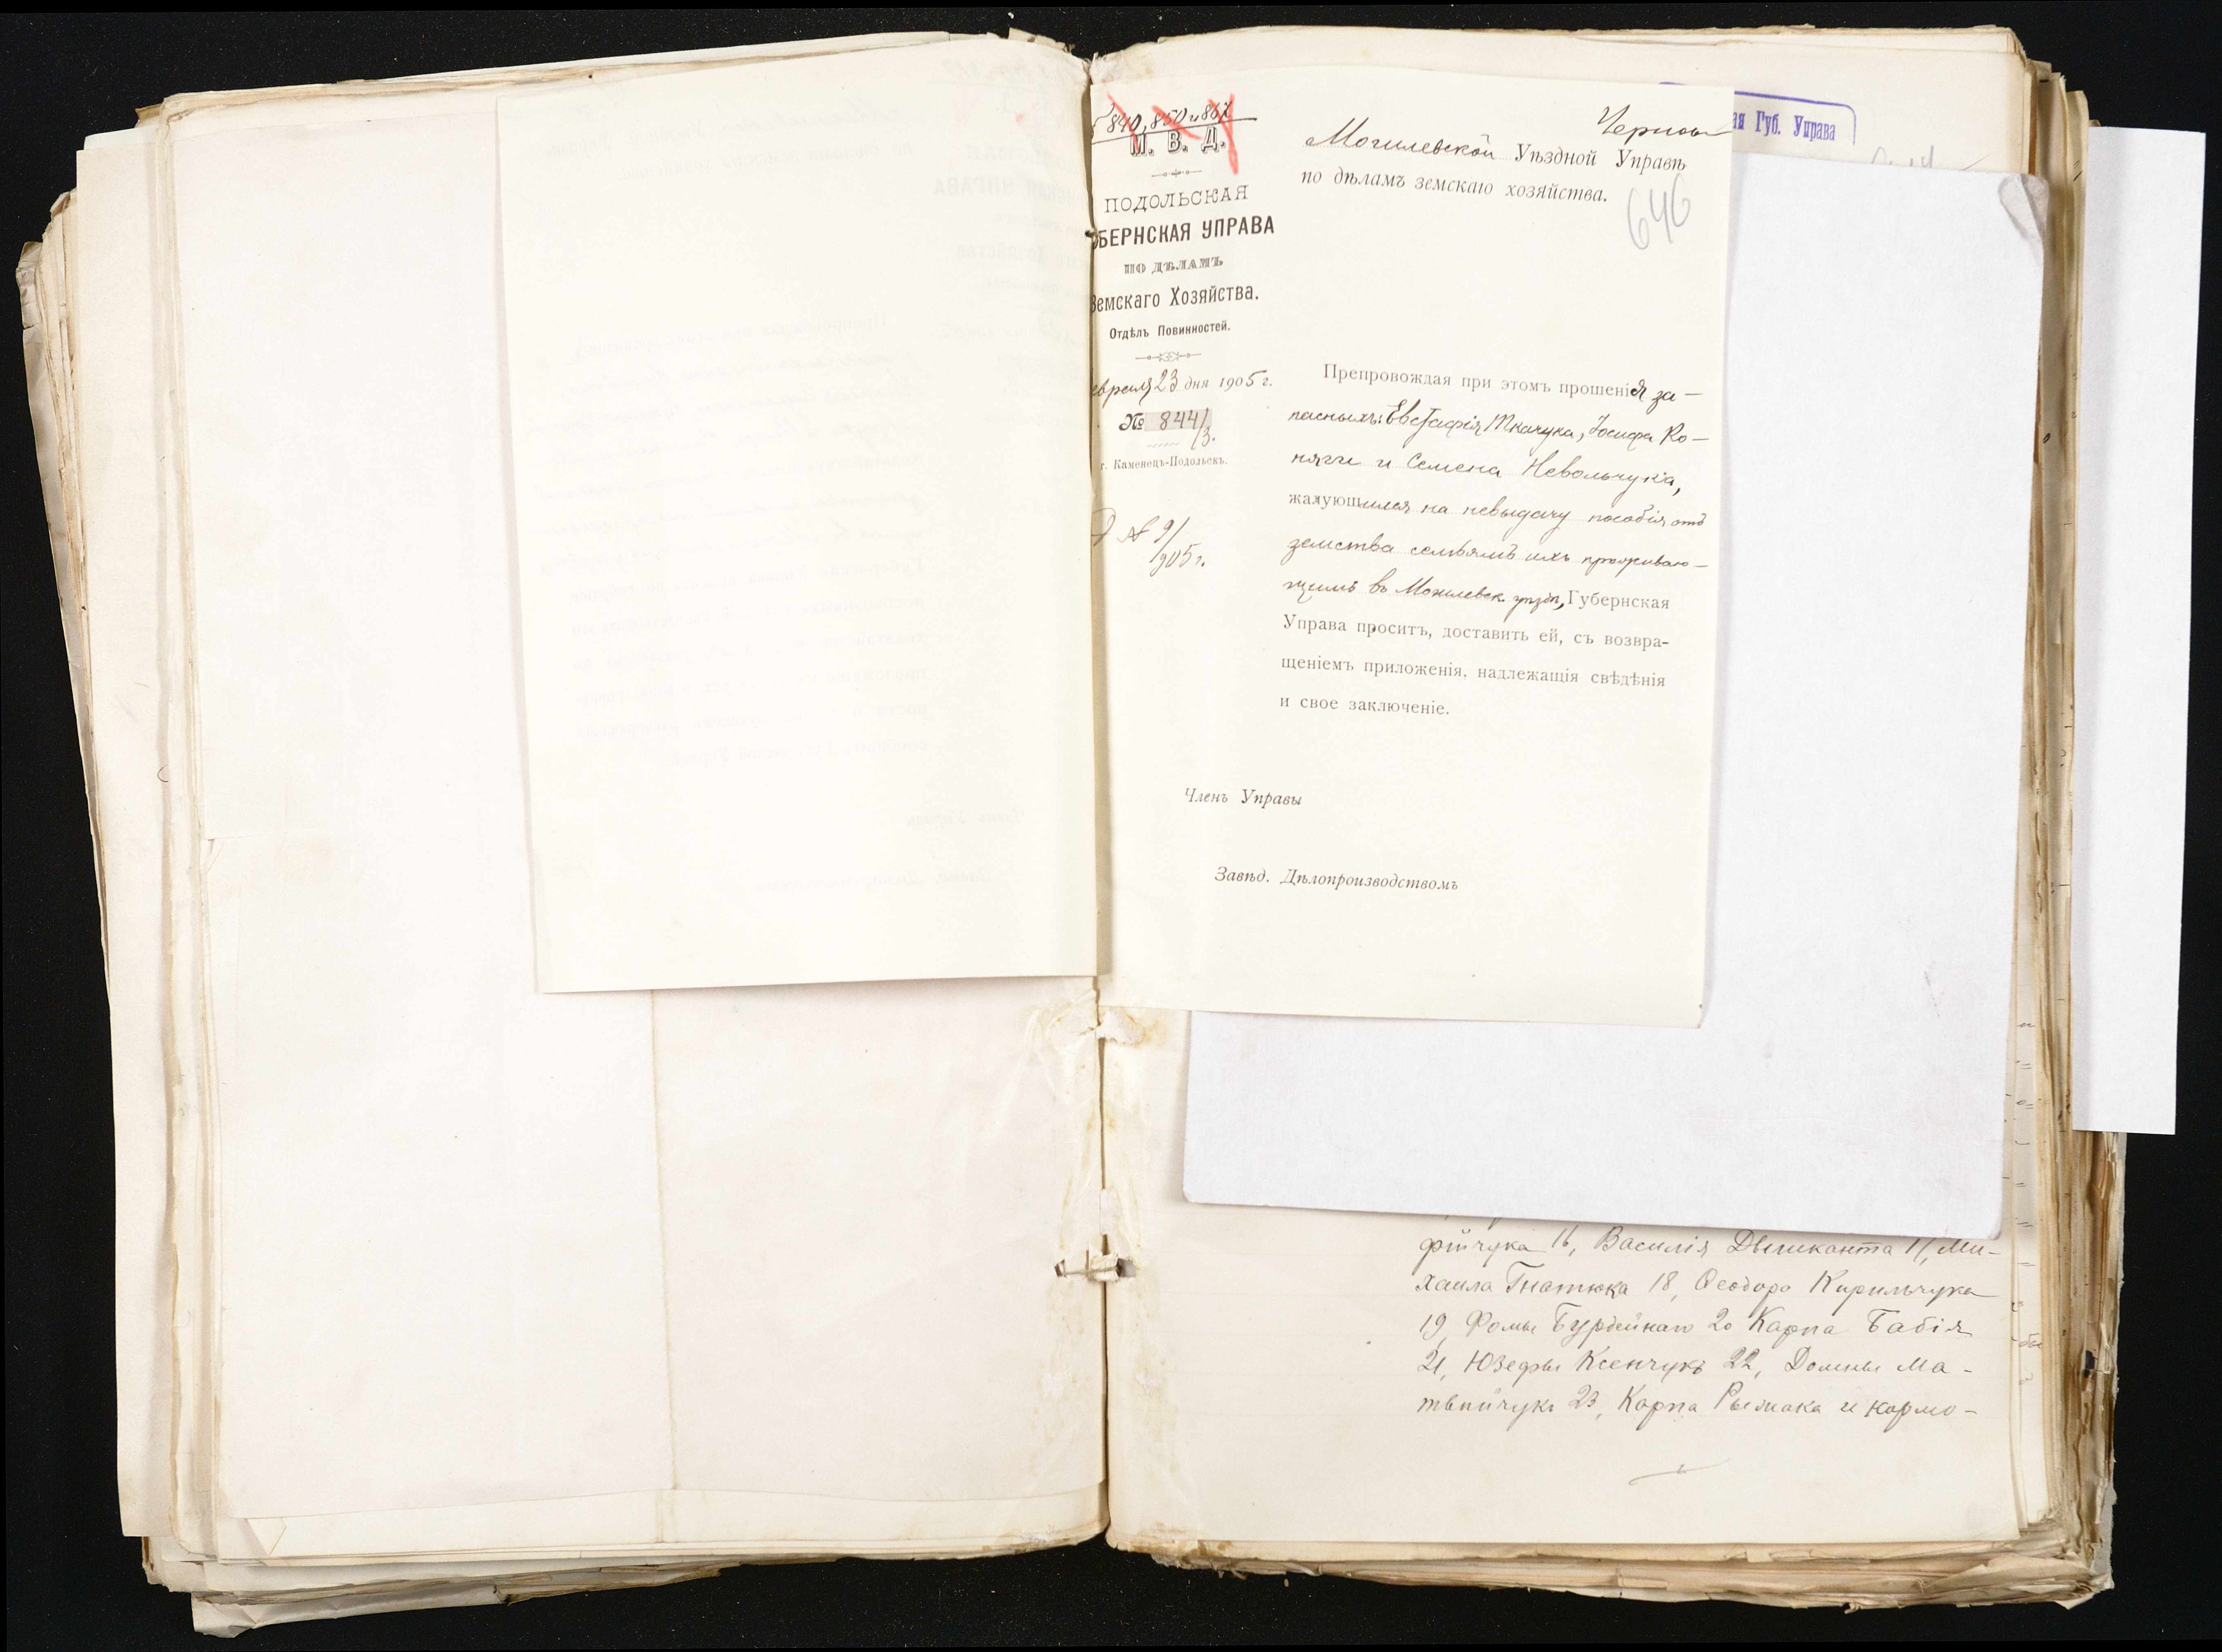 840, 850 и 867
М. В. Д.
ПОДОЛЬСКАЯ
БЕРНСКАЯ УПРАВА
ПО ДѢЛАМЪ
Земскаго Хозяйства.
Отдѣлъ Повинностей.
евраля 23 дня 1905 г.
№ 844/3.
г. Каменецъ-Подольскъ.
№ 9/
905 г.
Могилевской Уѣздной Управѣ
по дѣламъ земскаго хозяйства.
646
Препровождая при этомъ прошенія за-
пасныхъ: Евстафія Ткачука, Іосифа Ко-
няги и Семена Невольчука,
жалующихся на невыдачу пособія отъ
земства семьямъ ихъ проживаю-
щимъ въ Могилевск. уѣздѣ, Губернская
Управа проситъ, доставить ей, съ возвра-
щеніемъ приложенія, надлежащія свѣдѣнія
и свое заключеніе.
Членъ Управы
Завѣд. Дѣлопроизводствомъ
ая Губ. Управа
фійчука 16, Василія 17, Ми-
хаила Гнатюка 18, Ѳеодора Кирильчука
19, Фомы Бурдейнаго 20 Карпа Бабія
21, Юзефы Ксенчукъ 22, Домны Ма-
твийчукъ 23, Карпа Рыжака и кормо-